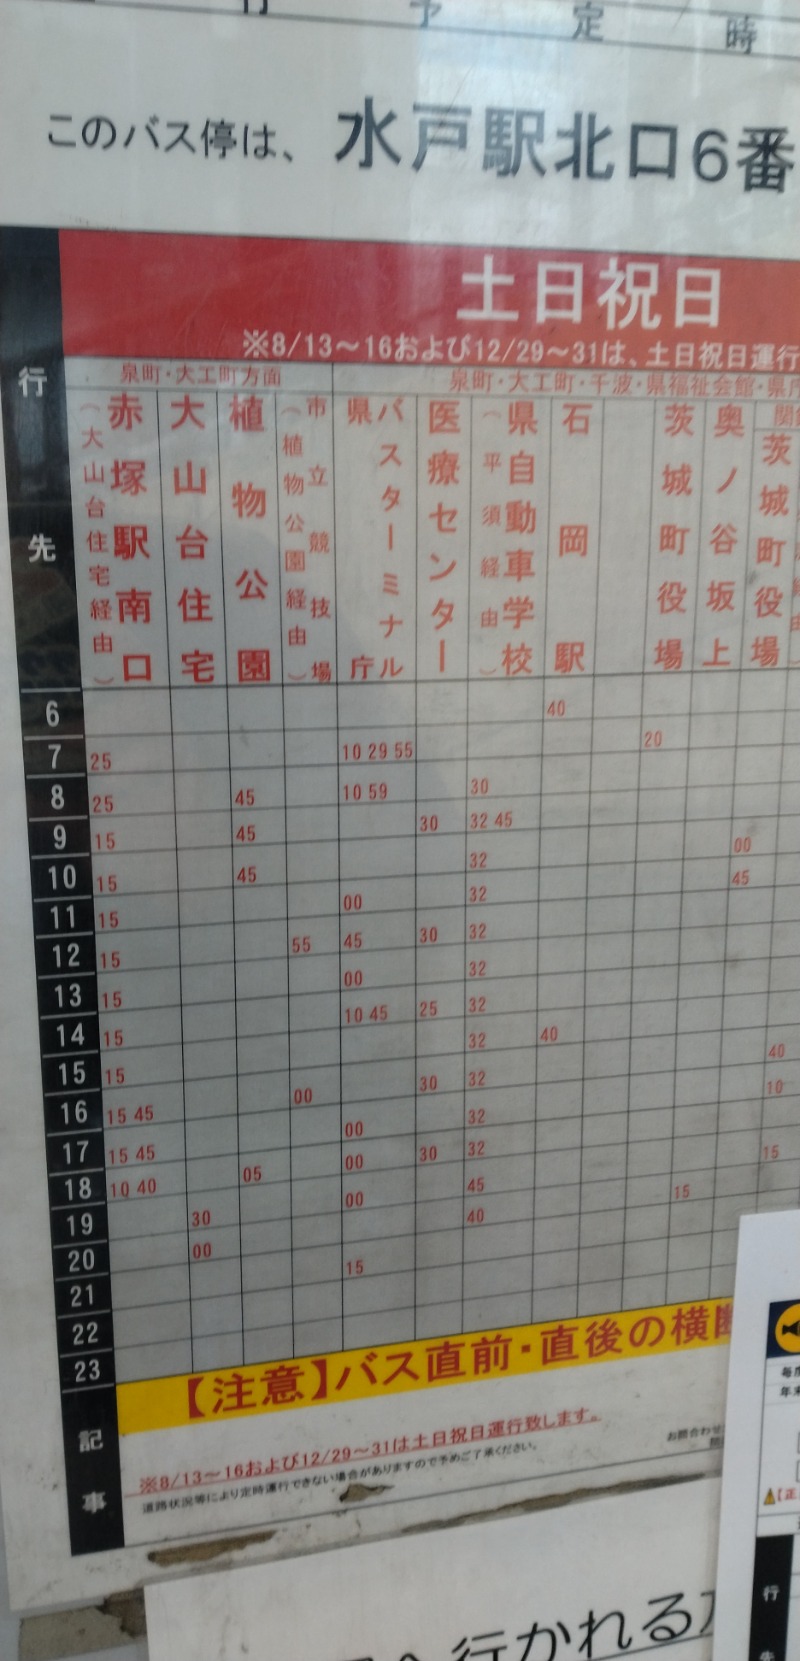 定 時
このバス停は、水戸駅北口6番
土日祝日
※8/13～16および12/29～31は、土日祝日運行
行先
泉町・大工町方面
泉町・大工町・千波・県福祉会館・県庁
赤塚駅南口
（大山台住宅経由）
大山台住宅
植物公園
市立競技場
（植物公園経由）
県庁
バスターミナル
医療センター
県自動車学校
（平須経由）
石岡駅
茨城町役場
奥ノ谷坂上
茨城町役場
6 40
7 25 10 29 55 20
8 25 45 10 59 30
9 15 45 30 32 45 00
10 15 45 32 45
11 15 00 32
12 15 55 45 30 32
13 15 00 32
14 15 10 45 25 32 40
15 15 32 40
16 15 45 00 30 32 10
17 15 45 00 32 15
18 10 40 05 00 30 32 15
19 30 00 45
20 00 40
21 15
22
23
【注意】バス直前・直後の横断
記事
※8/13～16および12/29～31は土日祝日運行致します。
道路状況等により定時運行できない場合がありますので予めご了承ください。
お問合わせ
行かれる
行
先